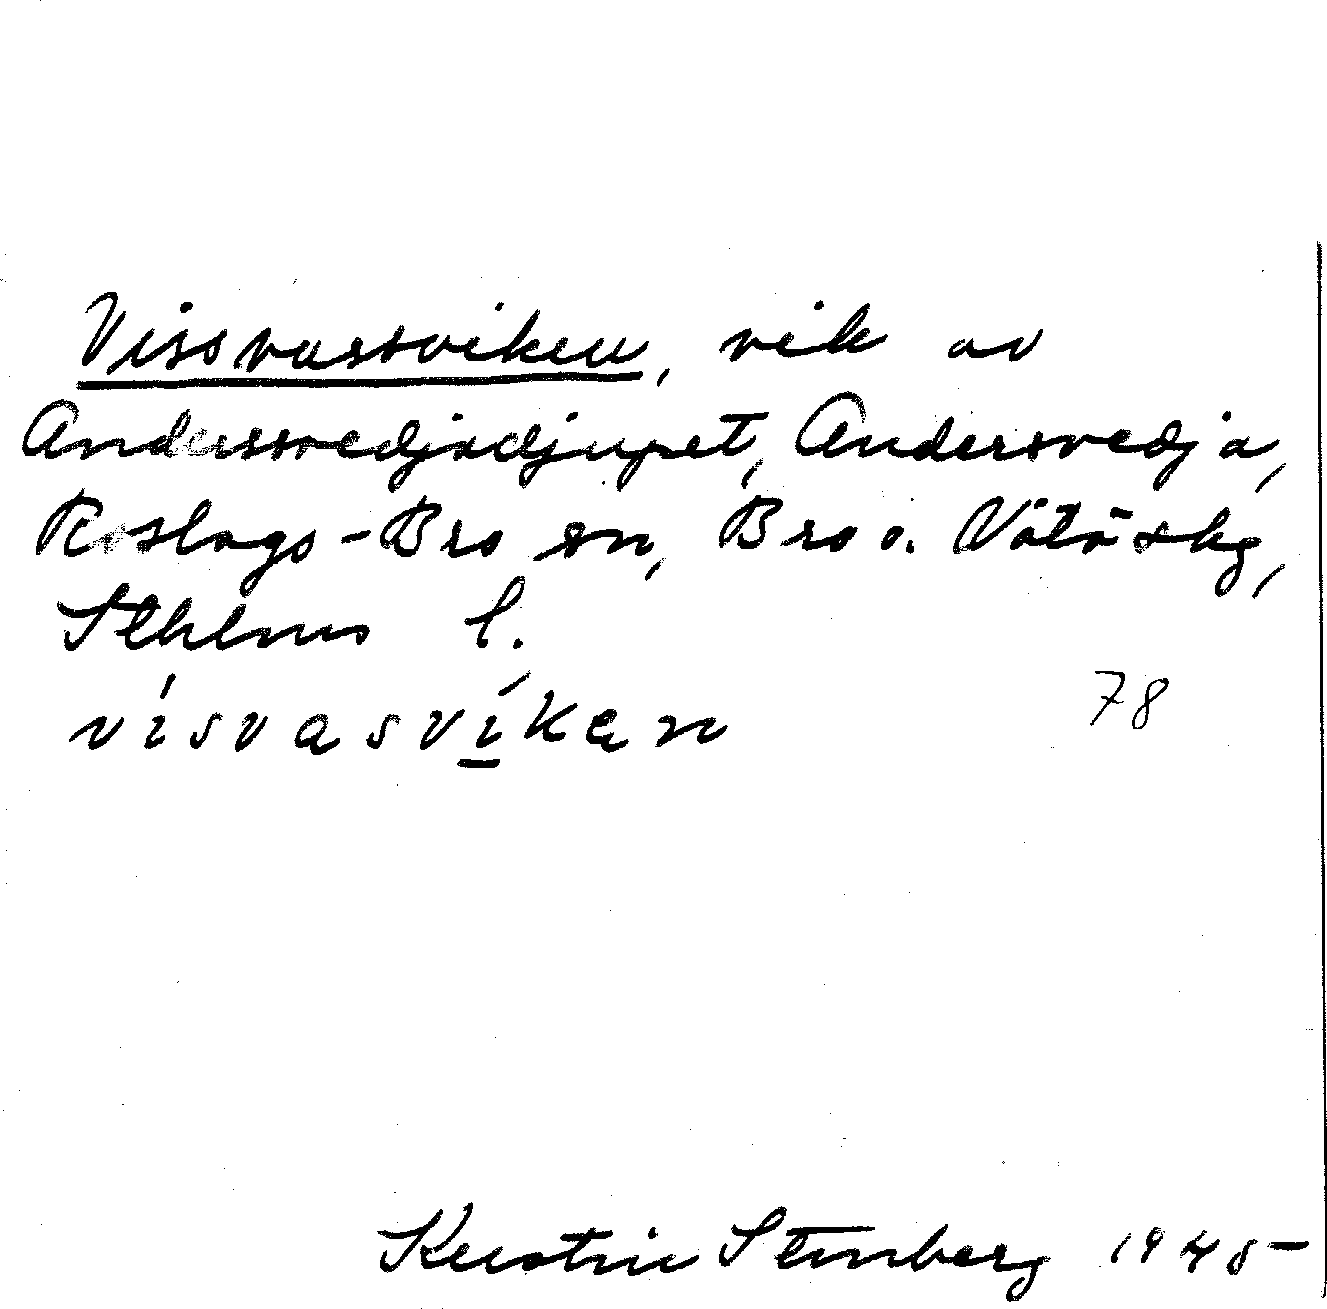 Vissvassviken, vik av
Anderssvedjadjupet, Andersvedja,
Roslags-Bro sn, Bro o. Vätö skg,
Sthlms l.
visvasvíkan
78
Kerstin Stenberg 1945